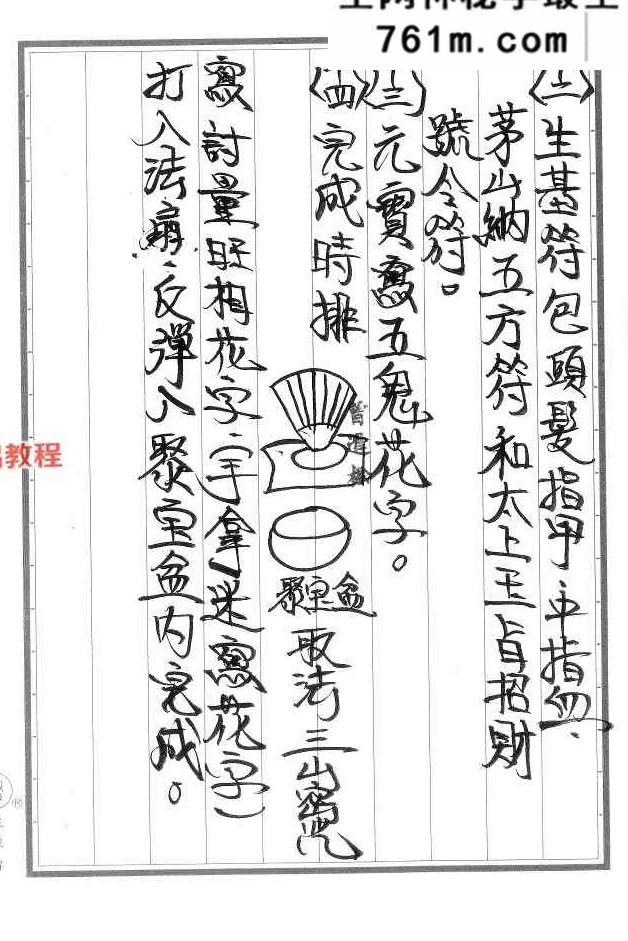 761m.com
(十二)生基符包頭髮指甲中指血、
茅山納五方符和太上王旨招財
號令符。
(十三)元寶寫五鬼花字。
(十四)完成時排
聚宝盆
取法三山密咒
寫討量旺相花字(手拿米寫花字)
打入法扇、反彈入聚宝盆内完成。
教程